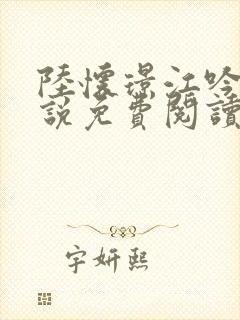 陸懷璟江吟
說免費閱讀
字妍熙